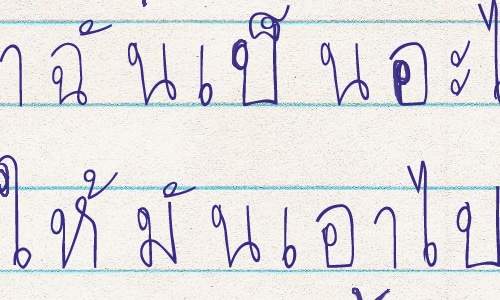 าฉันเป็นอะไ
ให้มันเอาไป